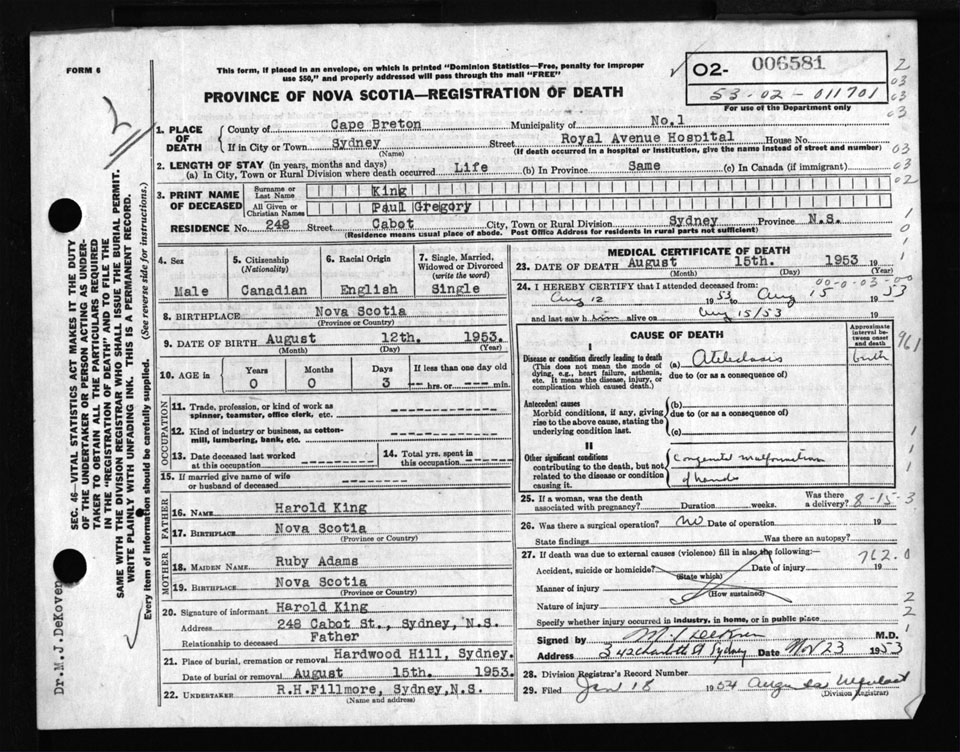 FORM 6
This form, if placed in an envelope, on which is printed "Dominion Statistics—Free, penalty for improper
use $50," and properly addressed will pass through the mail "FREE"
02- 006581
53-02-011701
For use of the Department only
PROVINCE OF NOVA SCOTIA—REGISTRATION OF DEATH
1. PLACE OF DEATH County of Cape Breton Municipality of No.1
If in City or Town Sydney Street Royal Avenue Hospital House No.
(Name) (If death occurred in a hospital or institution, give the name instead of street and number)
2. LENGTH OF STAY (in years, months and days)
(a) In City, Town or Rural Division where death occurred Life (b) In Province Same (c) In Canada (if immigrant)
3. PRINT NAME OF DECEASED Surname or Last Name King
All Given or Christian Names Paul Gregory
RESIDENCE No. 248 Street Cabot City, Town or Rural Division Sydney Province N.S.
(Residence means usual place of abode. Post Office Address for residents in rural parts not sufficient)
4. Sex Male
5. Citizenship (Nationality) Canadian
6. Racial Origin English
7. Single, Married, Widowed or Divorced (write the word) Single
8. BIRTHPLACE Nova Scotia
(Province or Country)
9. DATE OF BIRTH August 12th. 1953.
(Month) (Day) (Year)
10. AGE in Years Months Days If less than one day old
0 0 3 --- hrs. or --- min.
OCCUPATION
11. Trade, profession, or kind of work as spinner, teamster, office clerk, etc.
12. Kind of industry or business, as cotton-mill, lumbering, bank, etc.
13. Date deceased last worked at this occupation
14. Total yrs. spent in this occupation
15. If married give name of wife or husband of deceased
FATHER
16. Name Harold King
17. Birthplace Nova Scotia
(Province or Country)
MOTHER
18. Maiden Name Ruby Adams
19. Birthplace Nova Scotia
(Province or Country)
20. Signature of informant Harold King
Address 248 Cabot St., Sydney, N.S.
Relationship to deceased Father
21. Place of burial, cremation or removal Hardwood Hill, Sydney.
Date of burial or removal August 15th. 1953.
22. Undertaker R.H.Fillmore, Sydney,N.S.
(Name and Address)
MEDICAL CERTIFICATE OF DEATH
23. DATE OF DEATH August 15th. 1953 19
(Month) (Day) (Year)
00-0-03-00
24. I HEREBY CERTIFY that I attended deceased from:
Aug 12 1953 to Aug 15 1953
and last saw him alive on Aug 15/53 19
CAUSE OF DEATH
Approximate interval between onset and death
961
I
Disease or condition directly leading to death
(This does not mean the mode of dying, e.g., heart failure, asthenia, etc. It means the disease, injury, or complication which caused death.)
(a) Atelectasis birth
due to (or as a consequence of)
Antecedent causes
Morbid conditions, if any, giving rise to the above cause, stating the underlying condition last.
(b)
due to (or as a consequence of)
(c)
II
Other significant conditions
contributing to the death, but not related to the disease or condition causing it.
Congenital malformation
of hands
25. If a woman, was the death associated with pregnancy? Duration weeks. Was there a delivery? 8-15-3
26. Was there surgical operation? no Date of operation 19
State findings Was there an autopsy?
27. If death was due to external causes (violence) fill in also the following:
762.0
Accident, suicide or homicide? Date of injury 19
(State which)
Manner of injury
(How sustained)
Nature of injury
Specify whether injury occurred in industry, in home, or in public place
Signed by M. J. DeKoven M.D.
Address 342 Charlotte St Sydney Date Nov 23 1953
28. Division Registrar's Record Number
29. Filed Jan 18 1954
(Division Registrar)
SEC. 46—VITAL STATISTICS ACT MAKES IT THE DUTY
OF THE UNDERTAKER OR PERSON ACTING AS UNDER-
TAKER TO OBTAIN ALL THE PARTICULARS REQUIRED
IN THE "REGISTRATION OF DEATH" AND TO FILE THE
SAME WITH THE DIVISION REGISTRAR WHO SHALL ISSUE THE BURIAL PERMIT.
WRITE PLAINLY WITH UNFADING INK. THIS IS A PERMANENT RECORD.
Every item of information should be carefully supplied. (See reverse side for instructions.)
Dr.M.J.DeKoven